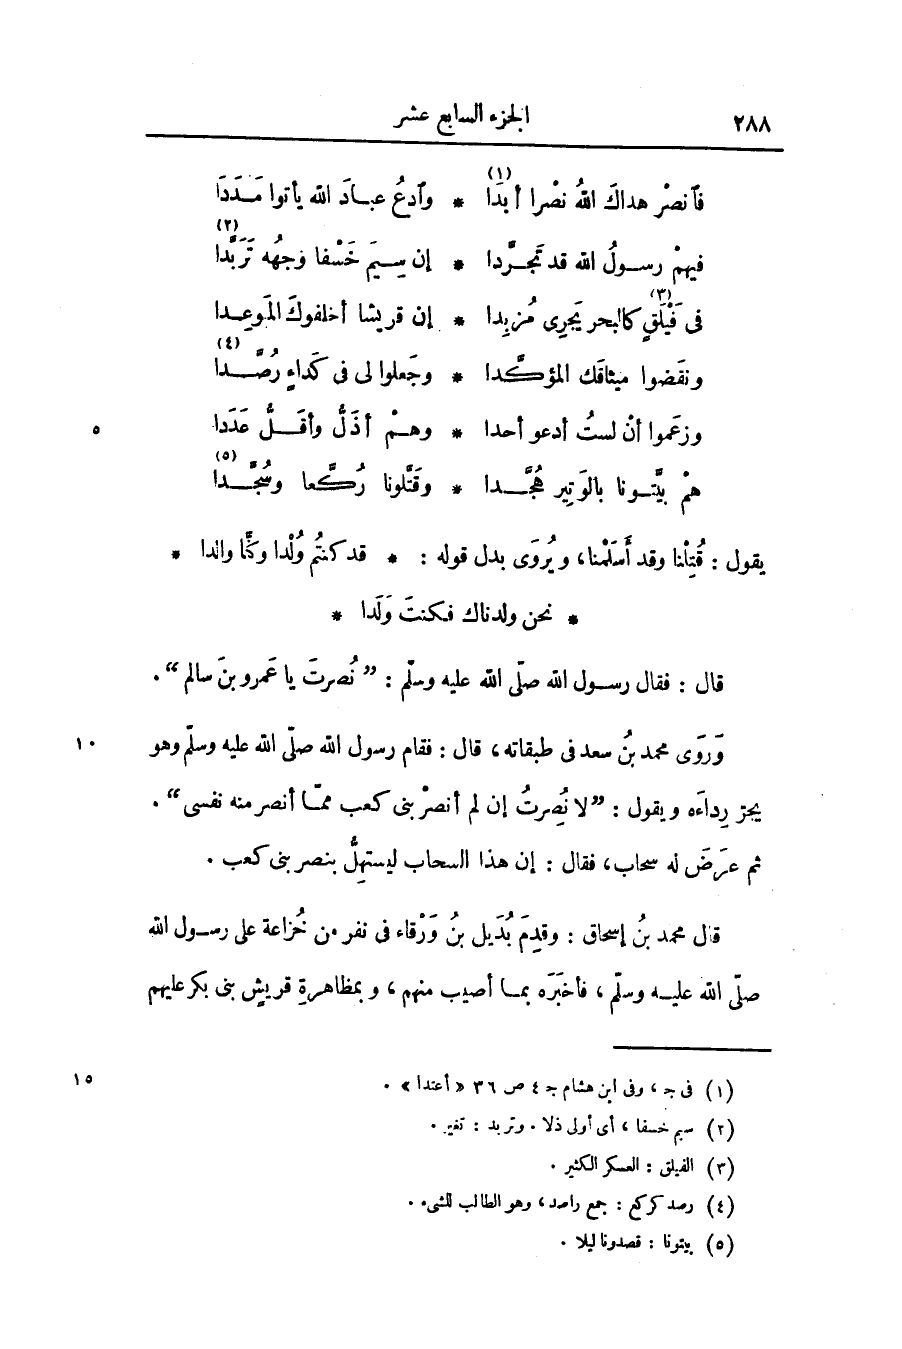 ٢٨٨ الجزء السابع عشر
فآنصرْ هداكَ اللهُ نصْرا أبدَا (١) * وآدعُ عبـادَ الله يأتوا مَـدَدَا
فيهمْ رسـولُ الله قد تَجـرَّدا * إن سِـيمَ خَسْفا وجهُه تَرَبَّدا (٢)
فى فَيْلَقٍ (٣) كالبحر يَجرِى مُزبِدا * إن قريشا أخلفوكَ المَوعِـدا
ونقَضوا ميثاقك المؤكَّدا * وجَعلوا لى فى كَداءٍ رُصَّـدا (٤)
وزعَموا أنْ لستُ أدعو أحدا * وهـمْ أذَلُّ وأقَـلُّ عَدَدا
٥
همْ بيَّتـونا (٥) بالوَتِير هُجَّـدا * وقَتَّلونا رُكَّعا وسُجَّـدا
يقول : قُتِلْنا وقد أَسْلَمْنا، ويُروَى بدل قوله : * قد كنتُم وُلْدا وكُنّا والدا *
* نحن ولدناك فكنتَ وَلَدا *
قال : فقال رسـول الله صلّى الله عليه وسلّم : ”نُصرتَ يا عَمرو بنَ سالم“ .
وَرَوَى محمد بنُ سعد فى طبقاته، قال : فقام رسول الله صلّى الله عليه وسلّم وهو
١٠
يجرّ رِداءَه ويقول : ”لا نُصِرتُ إن لم أنصرْ بنى كعب ممّـا أنصر منه نفسى“ .
ثم عرَضَ له سحاب، فقال : إن هذا السحاب ليستهِلُّ بنصر بنى كعب .
قال محمد بنُ إسحاق : وقدِمَ بُدَيل بنُ وَرْقاء فى نفر من خُزاعة على رسـول الله
صلّى الله عليـه وسلّم ، فأخبَرَه بمـا أصيب منهم ، وبمظاهرةِ قريشٍ بنى بكر عليهم
(١) فى جـ ، وفى ابن هشام جـ ٤ ص ٣٦ «أعتدا» .
١٥
(٢) سيم خسفا ، أى أولى ذلا . وتربد : تغير .
(٣) الفيلق : العسكر الكثير .
(٤) رصد كركع : جمع راصد، وهو الطالب للشىء .
(٥) بيتونا : قصدونا ليلا .